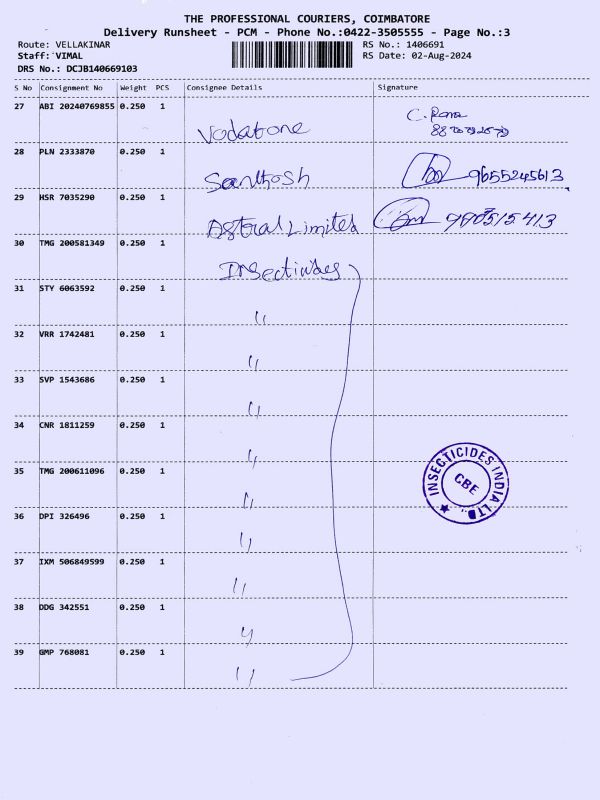 THE PROFESSIONAL COURIERS, COIMBATORE
Delivery Runsheet - PCM - Phone No.:0422-3505555 - Page No.:3
Route: VELLAKINAR RS No.: 1406691
Staff: VIMAL RS Date: 02-Aug-2024
DRS No.: DCJB140669103
S No Consignment No Weight PCS Consignee Details Signature
27 ABI 20240769855 0.250 1 Vodafone C. Rama
28 PLN 2333870 0.250 1 Santhosh 9655245613
29 HSR 7035290 0.250 1 Astral Limited
30 TMG 200581349 0.250 1 Insecticides
31 STY 6063592 0.250 1 "
32 VRR 1742481 0.250 1 "
33 SVP 1543686 0.250 1 "
34 CNR 1811259 0.250 1 "
35 TMG 200611096 0.250 1 "
36 DPI 326496 0.250 1 "
37 IXM 506849599 0.250 1 "
38 DDG 342551 0.250 1 "
39 GMP 768081 0.250 1 "
INSECTICIDES INDIA LTD.
CBE